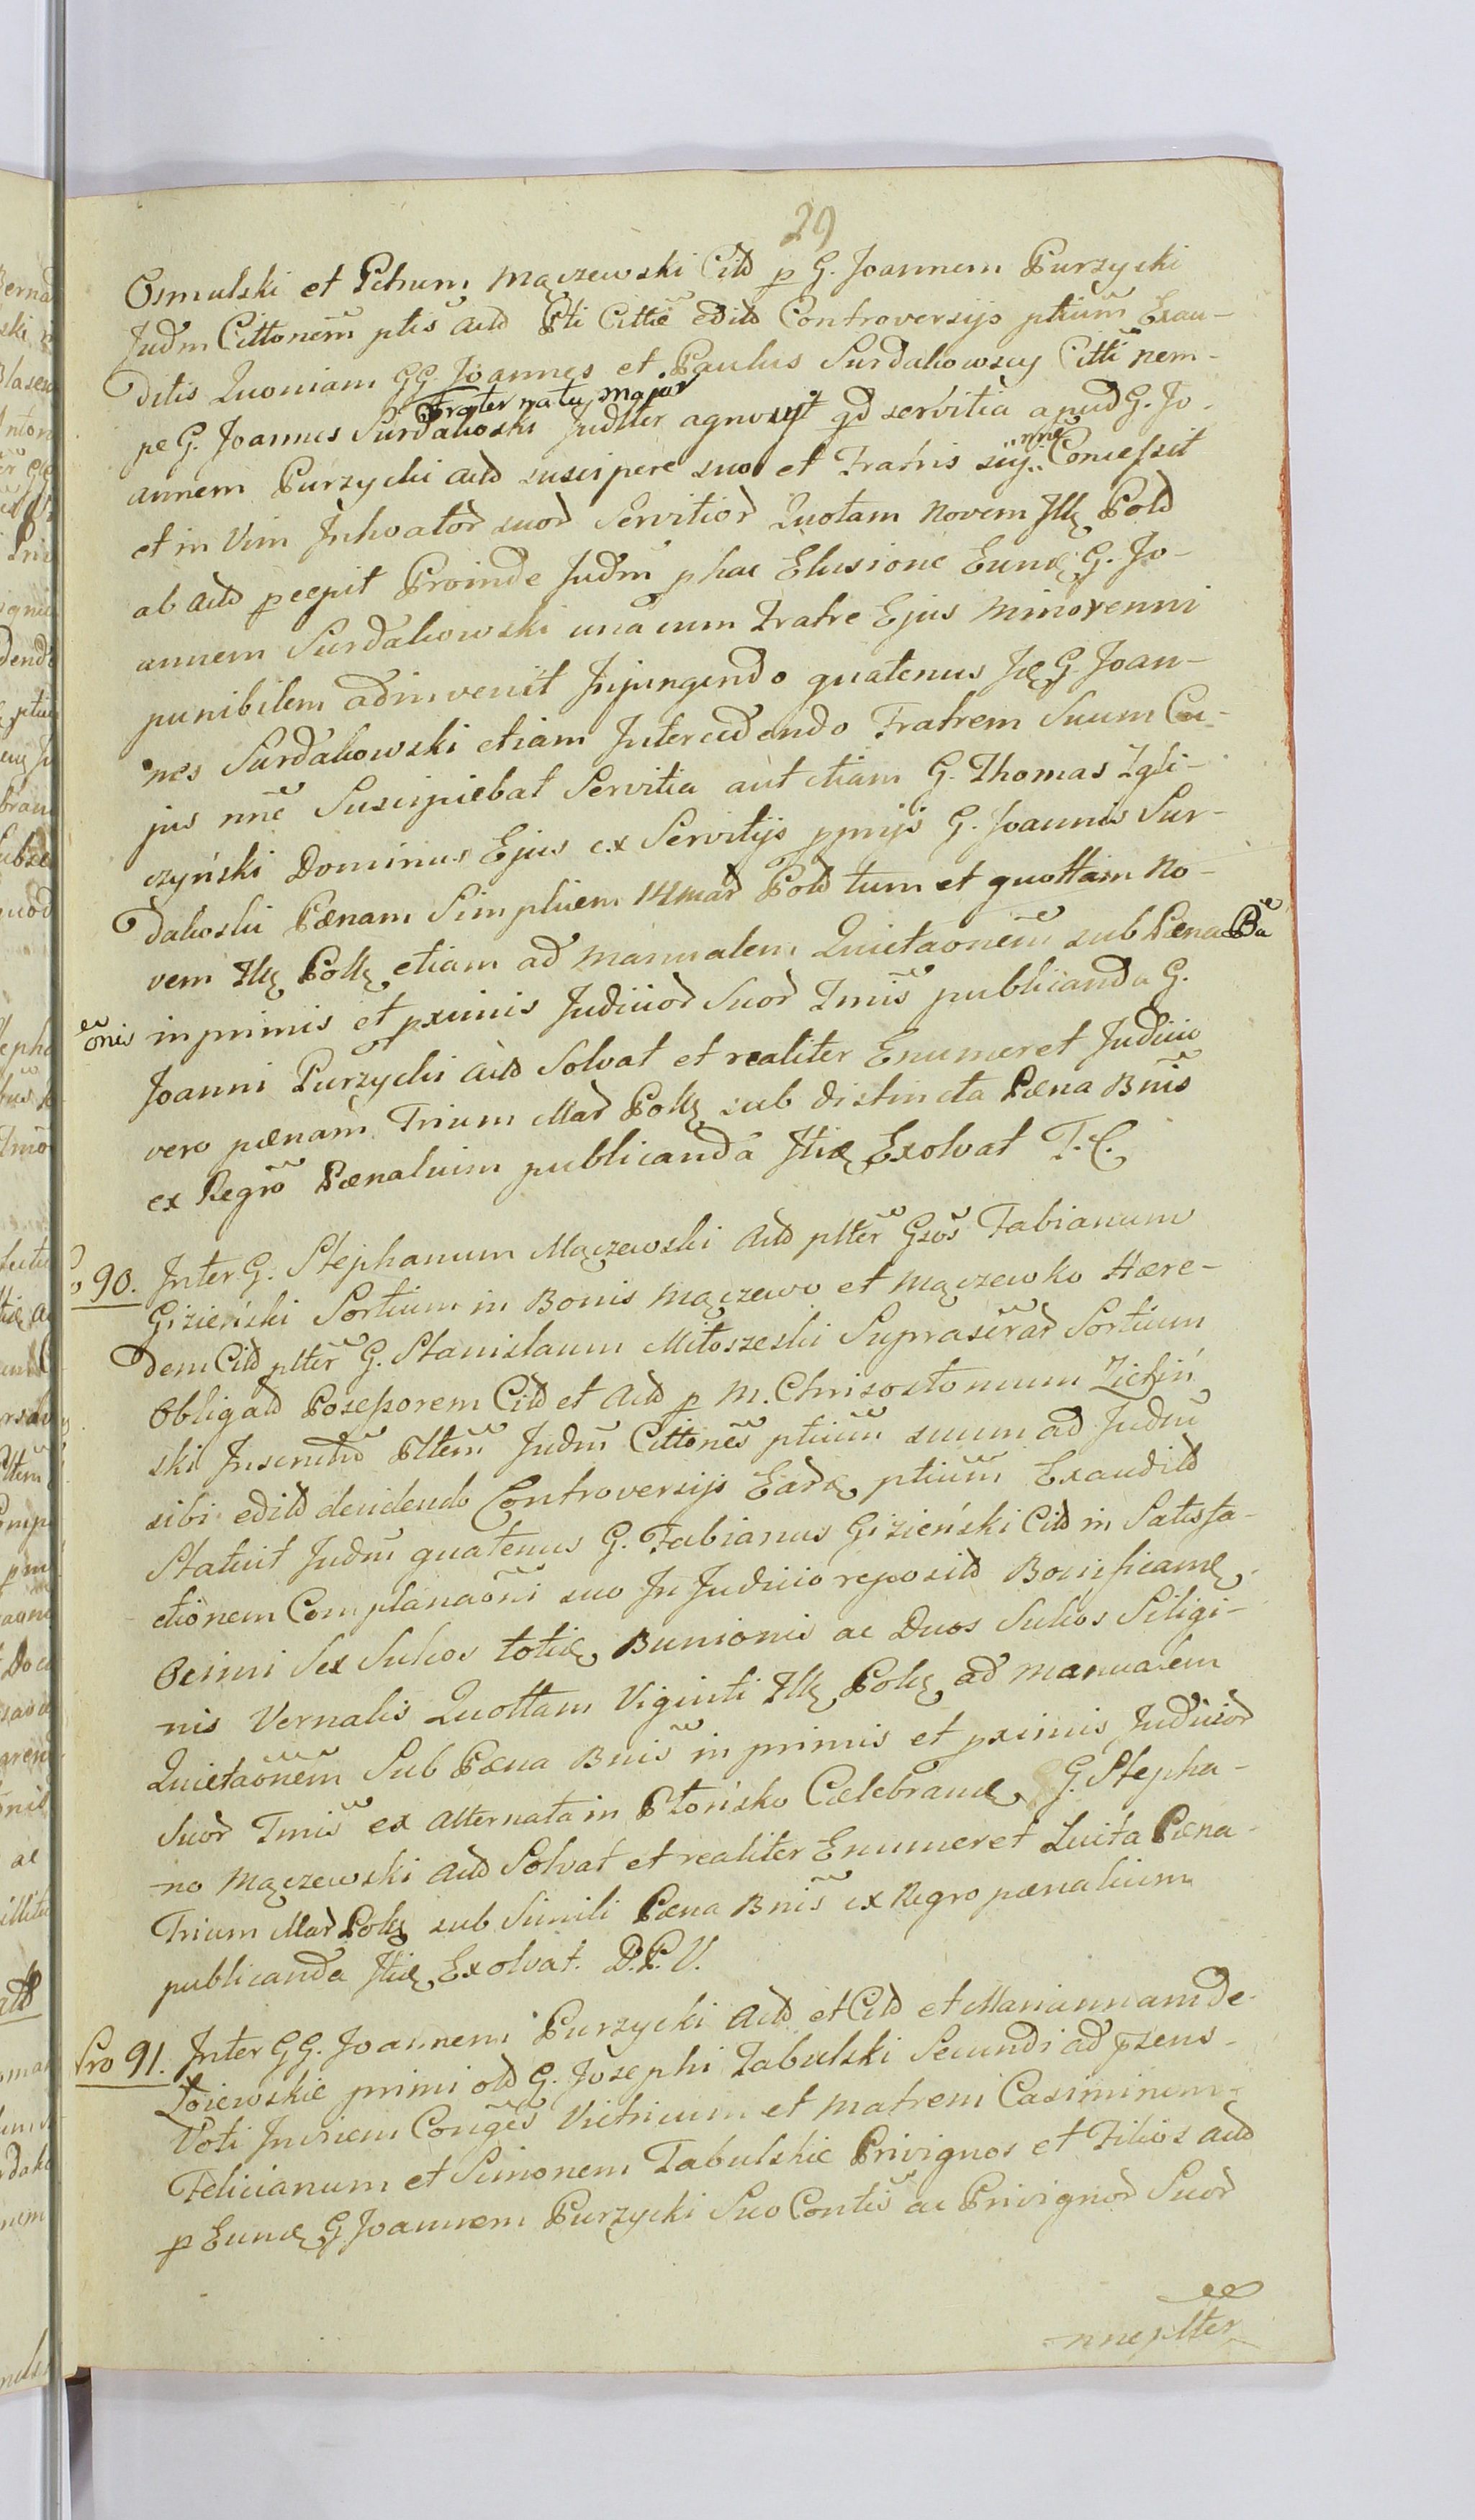 29
Osmulski et Petrum Mączewski Citd p G. Joannem Purzycki
Judm Cittonem ptis Actd Pti Cittie editd Controversijs ptium Exau-
ditis Quoniam GG Joannes et Paulus Surdakowscy Citti nem-
Frater natu major
pe G. Joannes Surdakoski Judtter agnovit qd servitia apud G. Jo-
annem Purzycki Actd suscipere suo et Fratris sui nne Concessit
et in Vim Inhoatod suod Servitiod Quotam Novem Fllę Pold
ab Actd pcepit Proinde Judm p hac Elusione Eundę G. Jo-
annem Surdakowski una cum Fratre Ejus Minorenni
punibilem adinvenit Injungendo quatenus Idę G Joan-
nes Surdakowski etiam Intercedendo Fratrem Suum Cu-
jus nne Suscipiebat Servitia aut etiam G. Thomas Igli-
czyński Dominus Ejus ex Servitijs pprijs G. Joannis Sur-
dakoski Pænam Simplicem 14 mad Pold tum et quottam No-
vem Fllę Pollę etiam ad Manualem Quietaonem sub Pæna Ba
onis in primis et pximis Judiciod Suod Tmis publicanda G.
Joanni Purzycki Actd Solvat et realiter Enumeret Judicio
vero pænam Trium Mad Pollę sub distincta Pæna Bnis
ex Regro Pænalium publicanda Itię Exolvat T. C.
90. Inter G. Stephanum Mączewski Actd ptter Gsos Fabianum
Gizieński Sortium in Bonis Mączewo et Mączewko Hære-
dem Citd ptter G. Stanislaum Miłoszeski Suprascrad Sortium
Obligatd Possessorem Citd et Actd p M. Chrisostomum Zieliń
ski Inscnethd Pttem Judm Cittones ptium suum ad Judm
sibi editd decidendo Controversijs Eardę ptium Exauditd
Statuit Judm quatenus G. Fabianus Gizieński Citd in Satisfa-
ctionem Complanaoni suo In Judicio repositd Bonificamę
Ocimi Sex Sulcos totię Bunionis ac Duos Sulcos Siligi-
nis Vernalis Quottam Viginti Fllę Pollę ad Manualem
Quietaonem Sub Pæna Bnis in primis et pximis Judiciod
Suod Tmis ex Alternata in Płońsko Cælebrandę G. Stepha-
no Mączewski Actd Solvat et realiter Enumeret Luita Pæna
Trium Mad Pollę sub Simili Pæna Bnis ex Regro pænalium
publicanda Itię Exolvat. D. P. V.
Pro 91. Inter GG. Joannem Purzycki Actd et Citd et Mariannam de
Łoiewskie primi old G. Josephi Tabulski Secundi ad psens
Voti Invicem Conges Vitricum et Matrem Casimirum
Felicianum et Simonem Tabulskie Privignos et Filios Actd
p Eundę G Joannem Purzycki Suo Contis ac Privignod Suod
nneptter